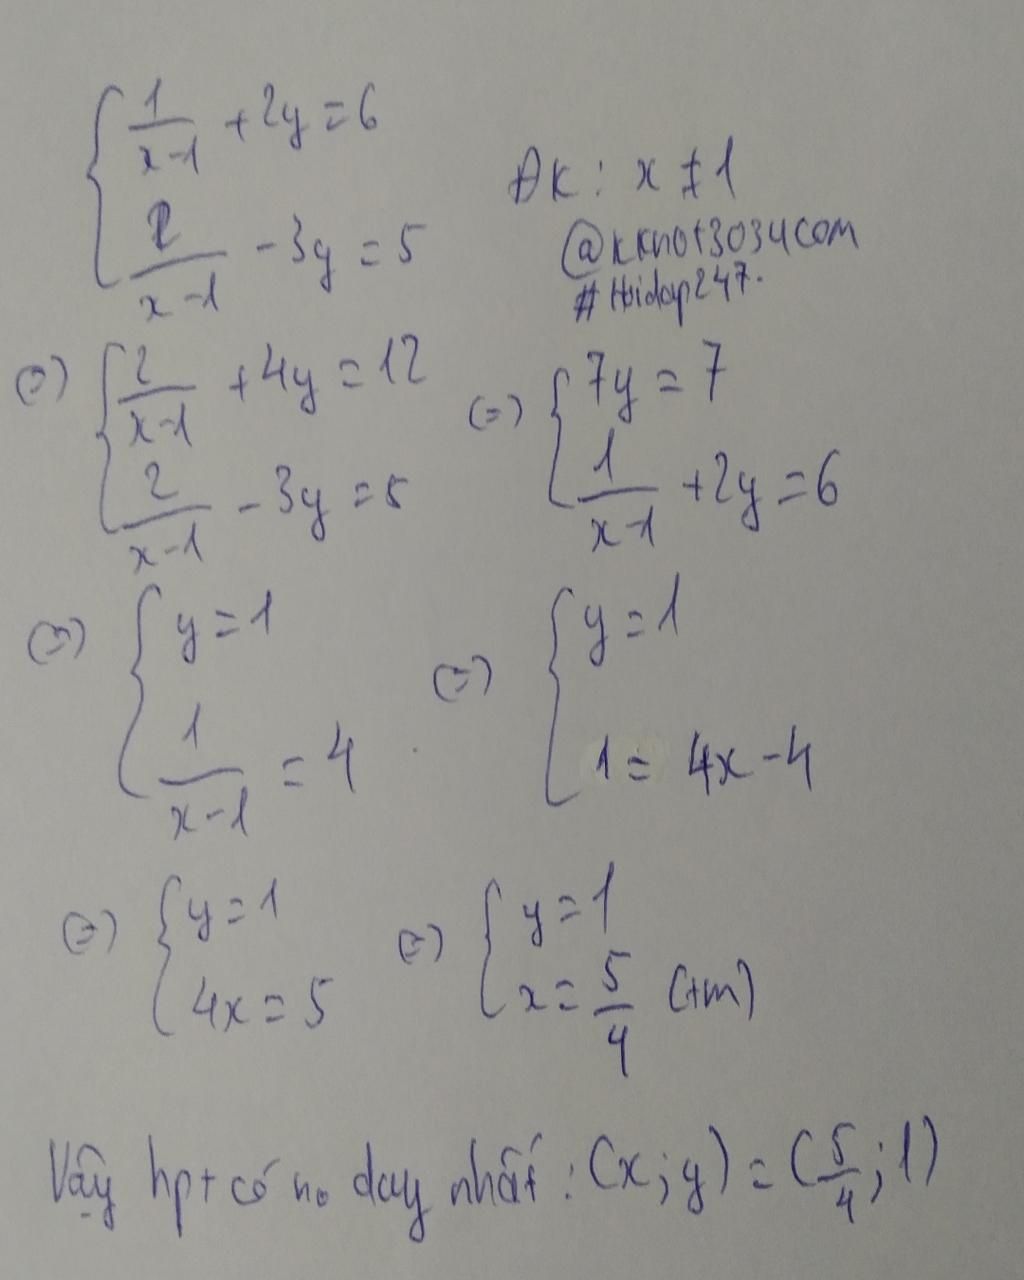 { 1/(x-1) + 2y = 6
{ 2/(x-1) - 3y = 5
ĐK: x ≠ 1
@kkhot3034com
#Hoidap247.
(=) { 2/(x-1) + 4y = 12
{ 2/(x-1) - 3y = 5
(=) { 7y = 7
{ 1/(x-1) + 2y = 6
(=) { y = 1
{ 1/(x-1) = 4
(=) { y = 1
{ 1 = 4x - 4
(=) { y = 1
{ 4x = 5
(=) { y = 1
{ x = 5/4 (tm)
Vậy hpt có no duy nhất : (x; y) = (5/4; 1)